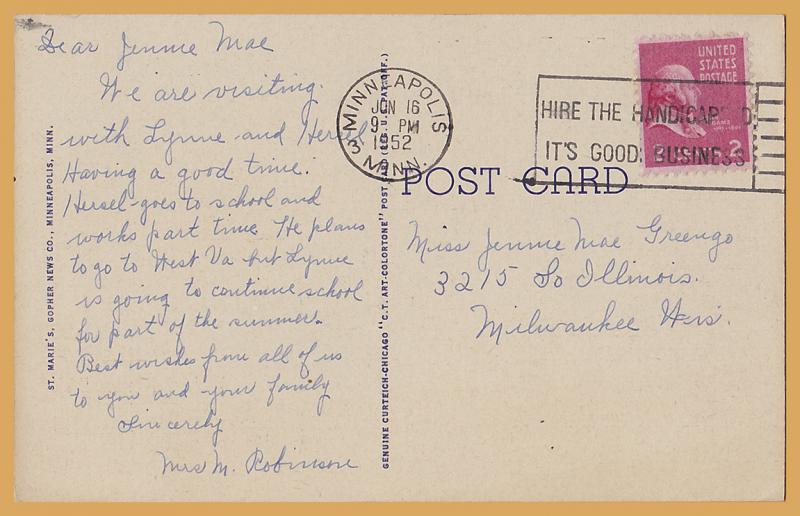 Dear Jennie Mae
We are visiting
with Lynne and Hersel
Having a good time.
Hersel goes to school and
works part time. He plans
to go to West Va but Lynne
is going to continue school
for part of the summer.
Best wishes from all of us
to you and your family
Sincerely
Mrs M. Robinson
ST. MARIE'S, GOPHER NEWS CO., MINNEAPOLIS, MINN.
GENUINE CURTEICH-CHICAGO "C.T. ART-COLORTONE" POST CARD (REG. U.S. PAT. OFF.)
MINNEAPOLIS
JUN 16
9 PM
1952
3 MINN.
HIRE THE HANDICAPPED
IT'S GOOD BUSINESS
UNITED
STATES
POSTAGE
2
POST CARD
Miss Jennie Mae Greengo
3215 So Illinois.
Milwaukee Wis.